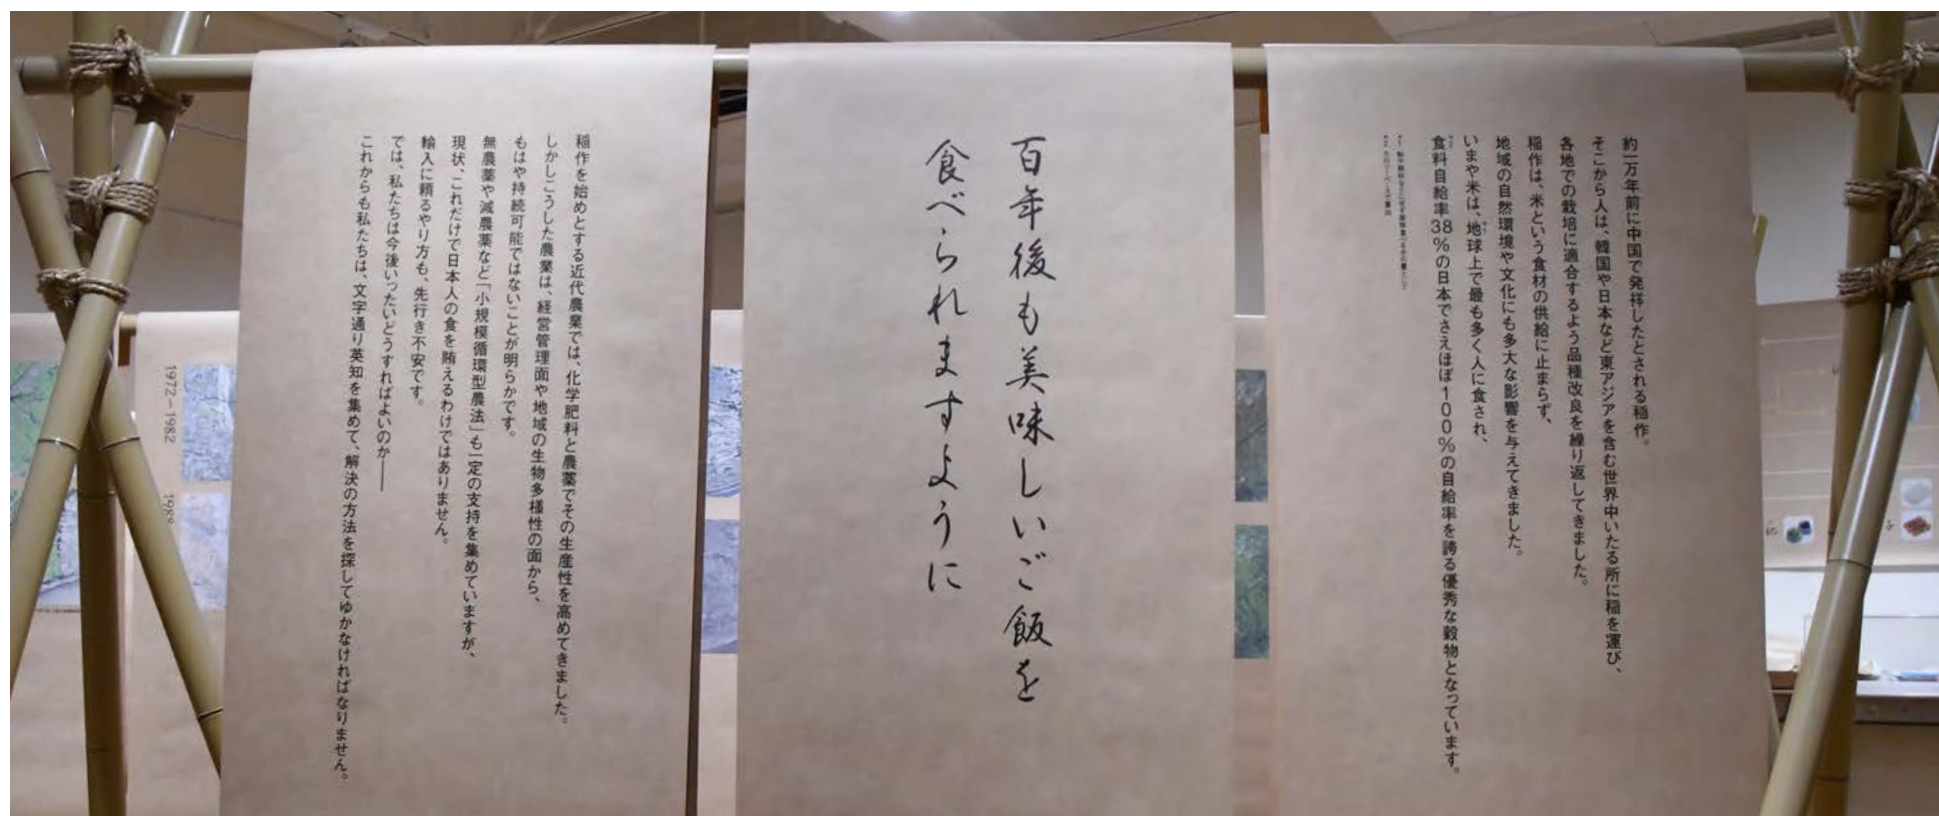 約一万年前に中国で発祥したとされる稲作。
そこから人は、韓国や日本など東アジアを含む世界中いたる所に稲を運び、
各地での栽培に適合するよう品種改良を繰り返してきました。
稲作は、米という食材の供給に止まらず、
地域の自然環境や文化にも多大な影響を与えてきました。
いまや米は、地球上で最も多く人に食され、
食料自給率38%の日本でさえほぼ100%の自給率を誇る優秀な穀物となっています。
百年後も美味しいご飯を
食べられますように
稲作を始めとする近代農業では、化学肥料と農薬でその生産性を高めてきました。
しかしこうした農業は、経営管理面や地域の生物多様性の面から、
もはや持続可能ではないことが明らかです。
無農薬や減農薬など「小規模循環型農法」も一定の支持を集めていますが、
現状、これだけで日本人の食を賄えるわけではありません。
輸入に頼るやり方も、先行き不安です。
では、私たちは今後いったいどうすればよいのか——
これからも私たちは、文字通り英知を集めて、解決の方法を探してゆかなければなりません。
1972–1982